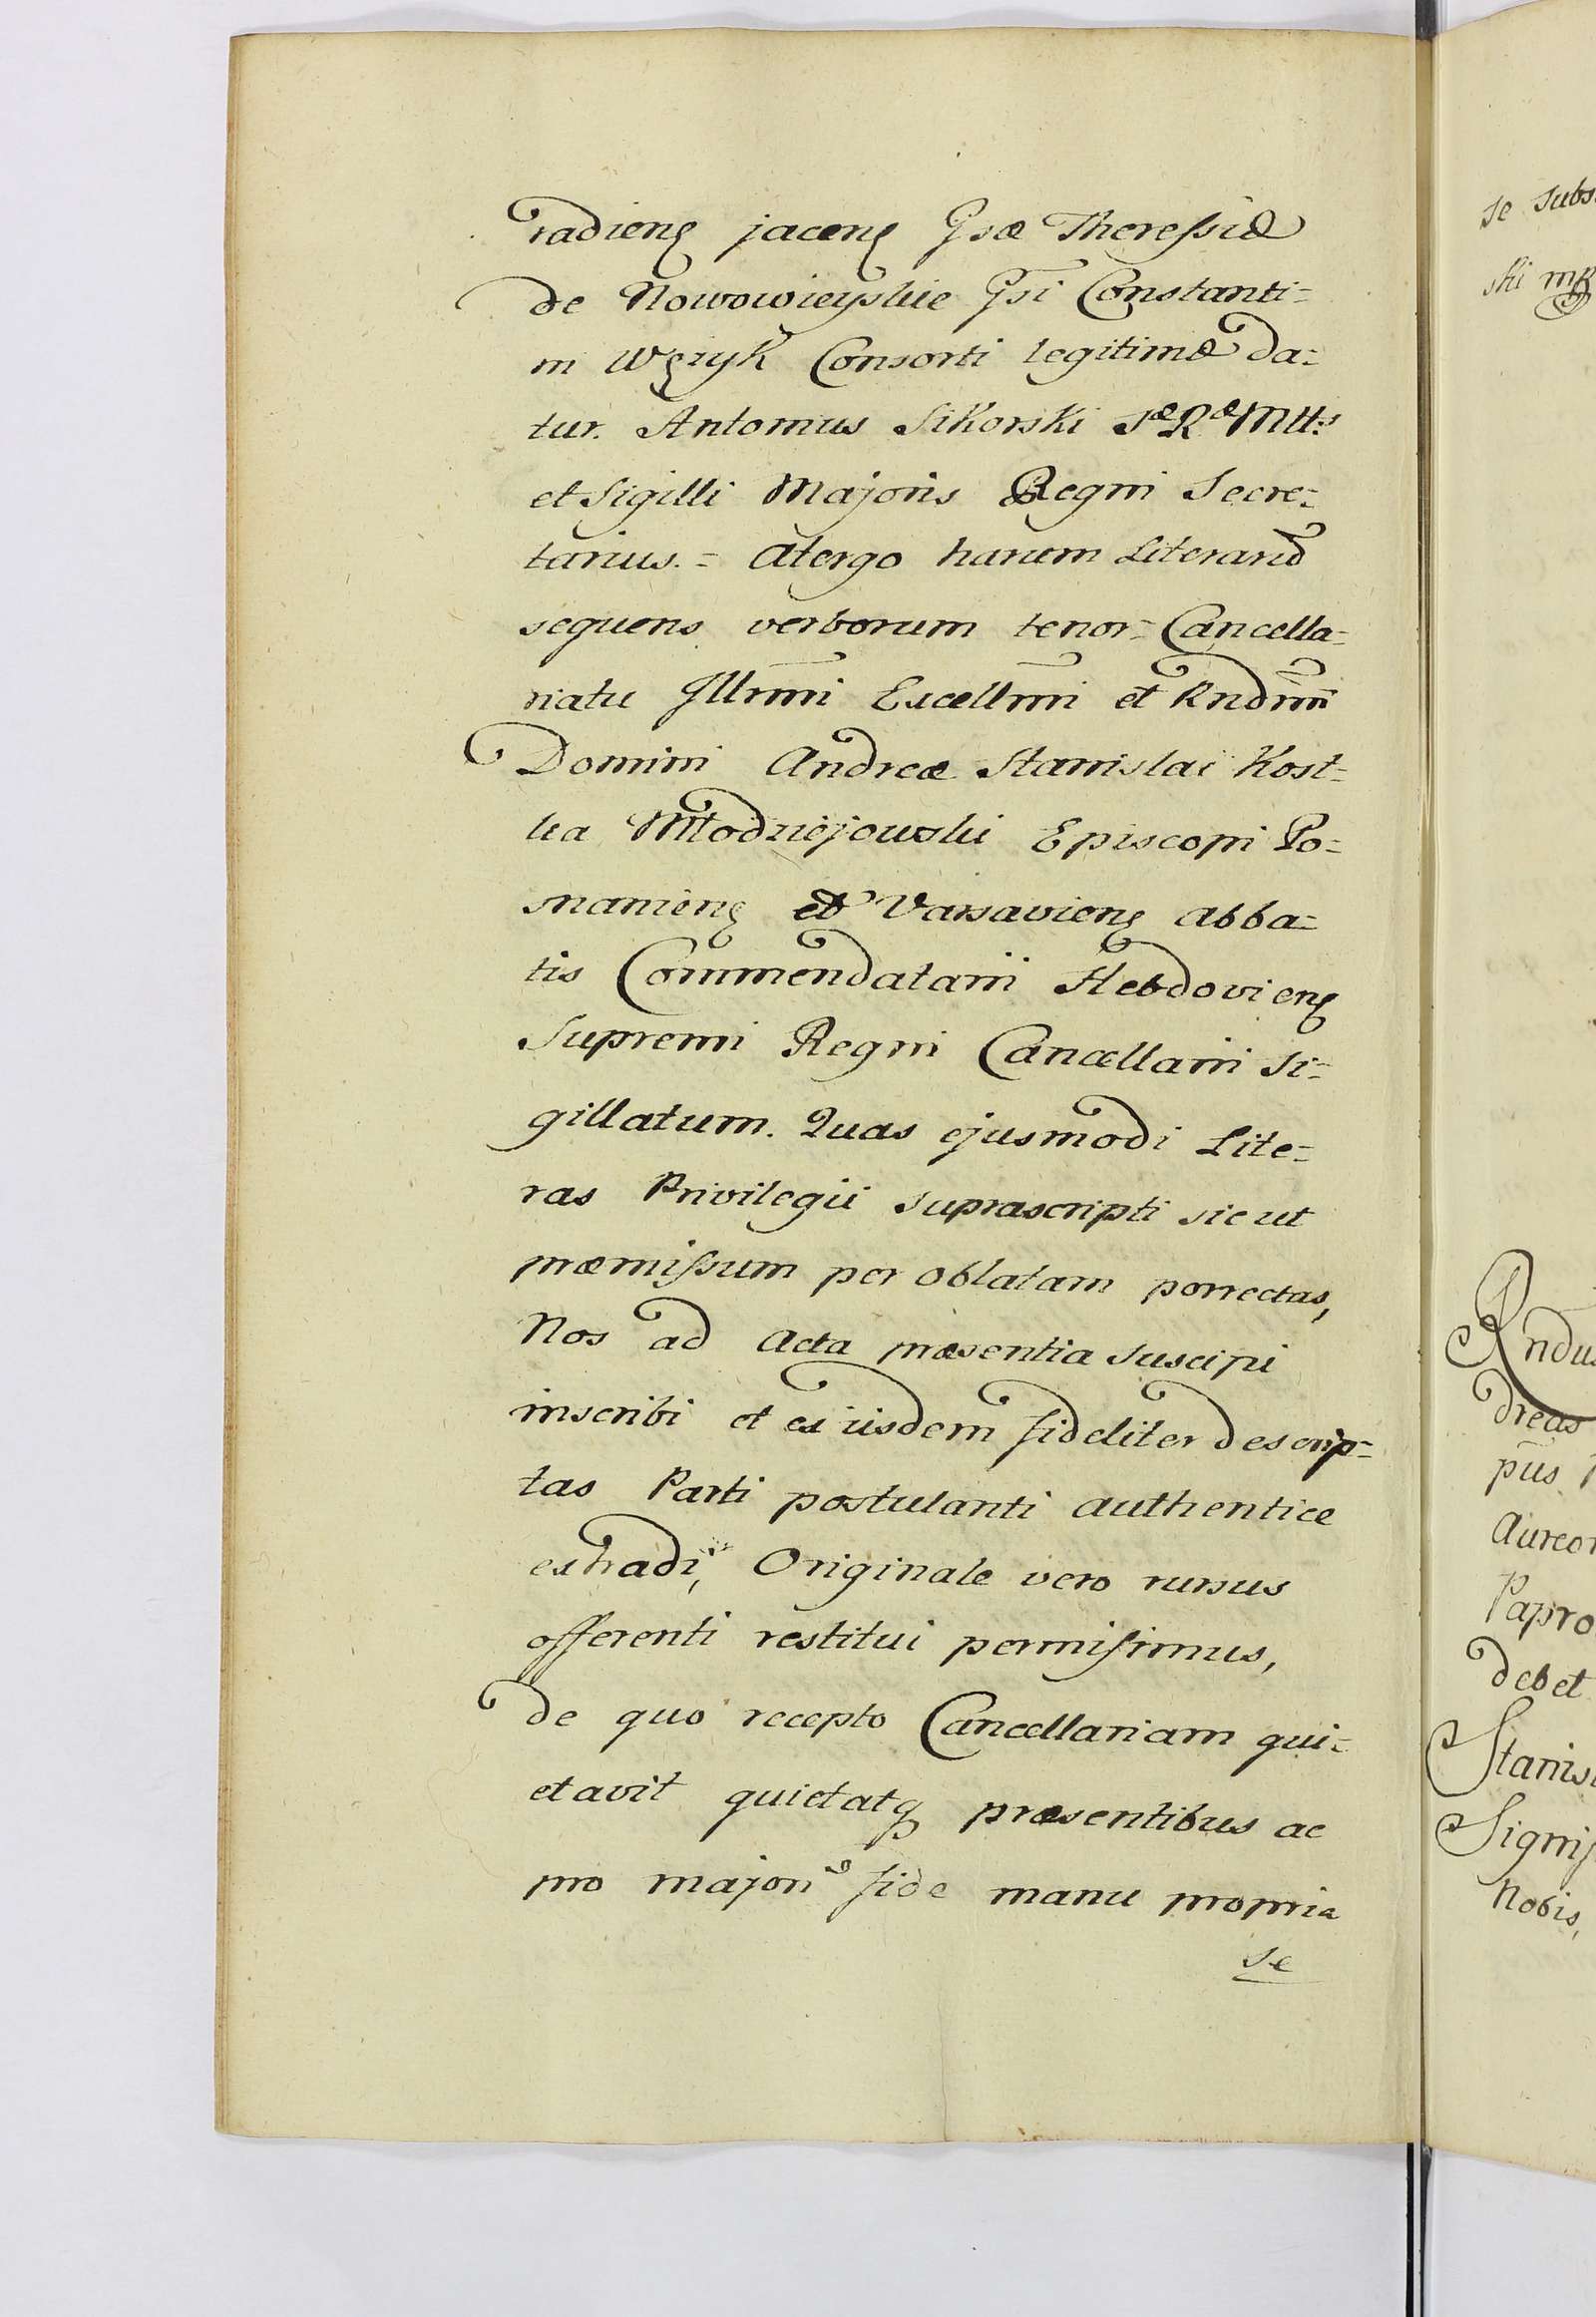 radieng jaceng Gsæ Theressiæ
de Nowowieyskie Gsi Constanti=
ni Węzyk Consorti legitimæ da=
tur. Antonius Sikorski Sæ Ræ Mttis
et Sigilli Majoris Regni Secre=
tarius. = Atergo harum Literarũ
sequens verborum tenor = Cancella=
riatu Jllmi Excellmi et Rndmi
Domini Andreæ Stanislai Kost=
ka Młodziejowski Episcopi Po=
snanieng et Varsavieng Abba=
tis Commendatarii Hebdovieng
Supremi Regni Cancellarii Si=
gillatum. Quas ejusmodi Lite=
ras Privilegii suprascripti sicut
præmissum per Oblatam porrectas,
Nos ad Acta præsentia suscipi
inscribi et ex iisdem fideliter descrip=
tas Parti postulanti authentice
extradi, Originale vero rursus
offerenti restitui permisimus,
de quo recepto Cancellariam qui=
etavit quietatq præsentibus ac
pro majori fide manu propria
se
se subs
ski mp
Rndus
dreas
pus
Aureor
Papro
debet
Stanis
Signif
Nobis,